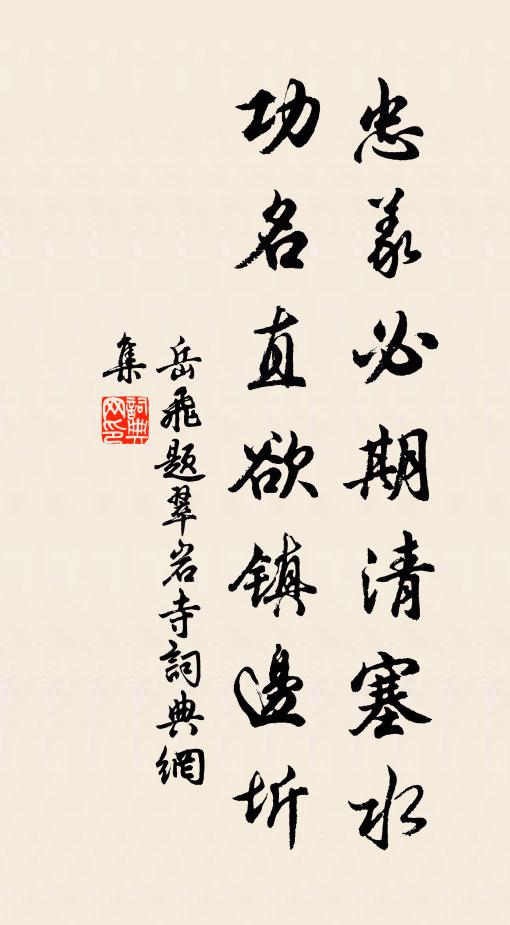 忠义必期清塞水
功名直欲镇邊圻
岳飛题翠岩寺詞典網
集
詞典网印